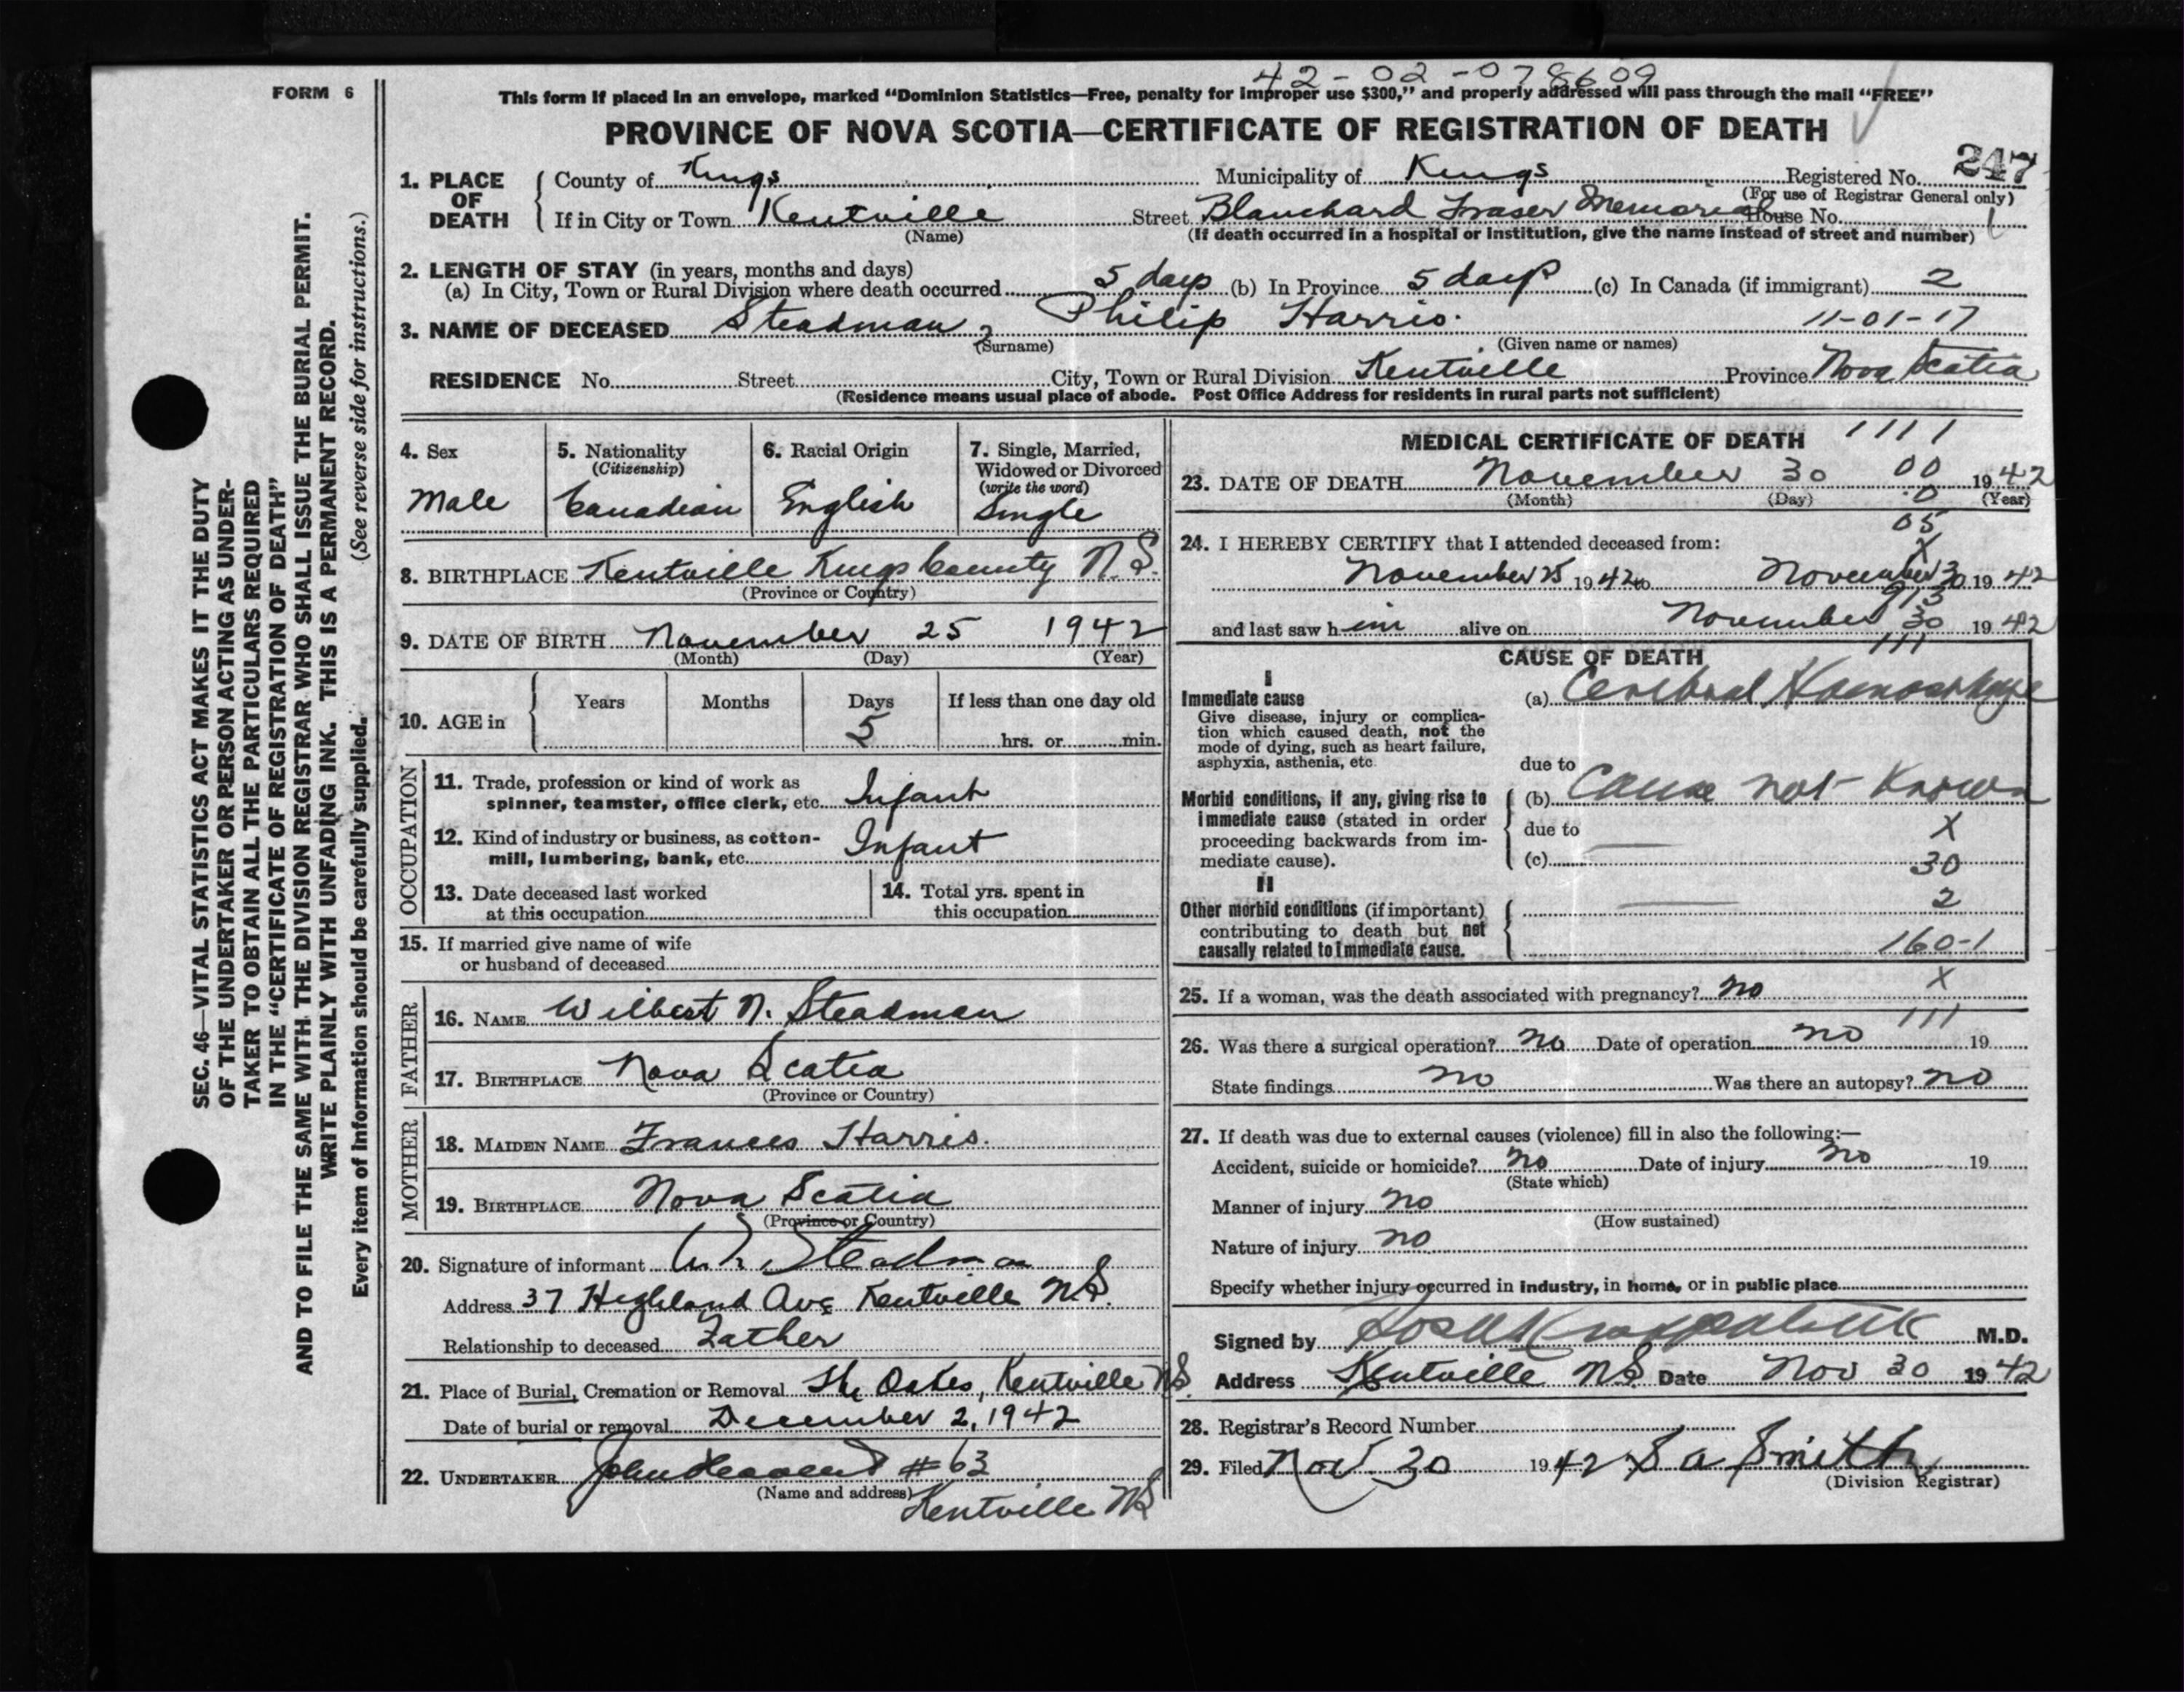 42-02-078609
FORM 6
This form if placed in an envelope, marked “Dominion Statistics—Free, penalty for improper use $300,” and properly addressed will pass through the mail “FREE”
PROVINCE OF NOVA SCOTIA—CERTIFICATE OF REGISTRATION OF DEATH
247
1. PLACE OF DEATH { County of Kings Municipality of Kings Registered No.
(For use of Registrar General only)
If in City or Town Kentville Street Blanchard Fraser Memorial House No. 1
(Name) (If death occurred in a hospital or institution, give the name instead of street and number)
2. LENGTH OF STAY (in years, months and days)
(a) In City, Town or Rural Division where death occurred 5 days (b) In Province 5 days (c) In Canada (if immigrant) 2
3. NAME OF DECEASED Steadman, Philip Harris. 11-01-17
(Surname) (Given name or names)
RESIDENCE No. Street City, Town or Rural Division Kentville Province Nova Scotia
(Residence means usual place of abode. Post Office Address for residents in rural parts not sufficient)
4. Sex
Male
5. Nationality
(Citizenship)
Canadian
6. Racial Origin
English
7. Single, Married,
Widowed or Divorced
(write the word)
Single
8. BIRTHPLACE Kentville Kings County N.S.
(Province or Country)
9. DATE OF BIRTH November 25 1942
(Month) (Day) (Year)
10. AGE in { Years Months Days If less than one day old
5 hrs. or min.
OCCUPATION
11. Trade, profession or kind of work as
spinner, teamster, office clerk, etc. Infant
12. Kind of industry or business, as cotton-
mill, lumbering, bank, etc. Infant
13. Date deceased last worked
at this occupation
14. Total yrs. spent in
this occupation
15. If married give name of wife
or husband of deceased
FATHER
16. NAME Wilbert N. Steadman
17. BIRTHPLACE Nova Scotia
(Province or Country)
MOTHER
18. MAIDEN NAME Frances Harris.
19. BIRTHPLACE Nova Scotia
(Province or Country)
20. Signature of informant W N Steadman
Address 37 Highland Ave Kentville N.S.
Relationship to deceased Father
21. Place of Burial, Cremation or Removal The Oakes, Kentville NS.
Date of burial or removal December 2, 1942
22. UNDERTAKER John #63
(Name and address) Kentville NS
MEDICAL CERTIFICATE OF DEATH 1111
00
23. DATE OF DEATH November 30 1942
(Month) (Day) (Year)
0
05
24. I HEREBY CERTIFY that I attended deceased from:
X
November 25 1942 to November 30 1942
913
and last saw h im alive on November 30 1942
111
CAUSE OF DEATH
I
Immediate cause (a) Cerebral Haemorrhage
Give disease, injury or complica-
tion which caused death, not the
mode of dying, such as heart failure,
asphyxia, asthenia, etc.
due to
Morbid conditions, if any, giving rise to (b) Cause not Known
immediate cause (stated in order due to X
proceeding backwards from im-
mediate cause). (c) 30
II
Other morbid conditions (if important) 2
contributing to death but not
causally related to immediate cause. 160-1
X
25. If a woman, was the death associated with pregnancy? no
111
26. Was there a surgical operation? no Date of operation no 19
State findings no Was there an autopsy? no
27. If death was due to external causes (violence) fill in also the following:—
Accident, suicide or homicide? no Date of injury no 19
(State which)
Manner of injury no
(How sustained)
Nature of injury no
Specify whether injury occurred in industry, in home, or in public place
Signed by M.D.
Address Kentville NS Date Nov 30 1942
28. Registrar's Record Number
29. Filed Nov. 30 1942 S a Smith
(Division Registrar)
SEC. 46—VITAL STATISTICS ACT MAKES IT THE DUTY
OF THE UNDERTAKER OR PERSON ACTING AS UNDER-
TAKER TO OBTAIN ALL THE PARTICULARS REQUIRED
IN THE “CERTIFICATE OF REGISTRATION OF DEATH”
AND TO FILE THE SAME WITH THE DIVISION REGISTRAR WHO SHALL ISSUE THE BURIAL PERMIT.
WRITE PLAINLY WITH UNFADING INK. THIS IS A PERMANENT RECORD.
Every item of information should be carefully supplied. (See reverse side for instructions.)